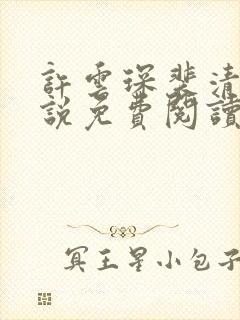 許雲琛裴清
說免費閱讀
冥王星小包子